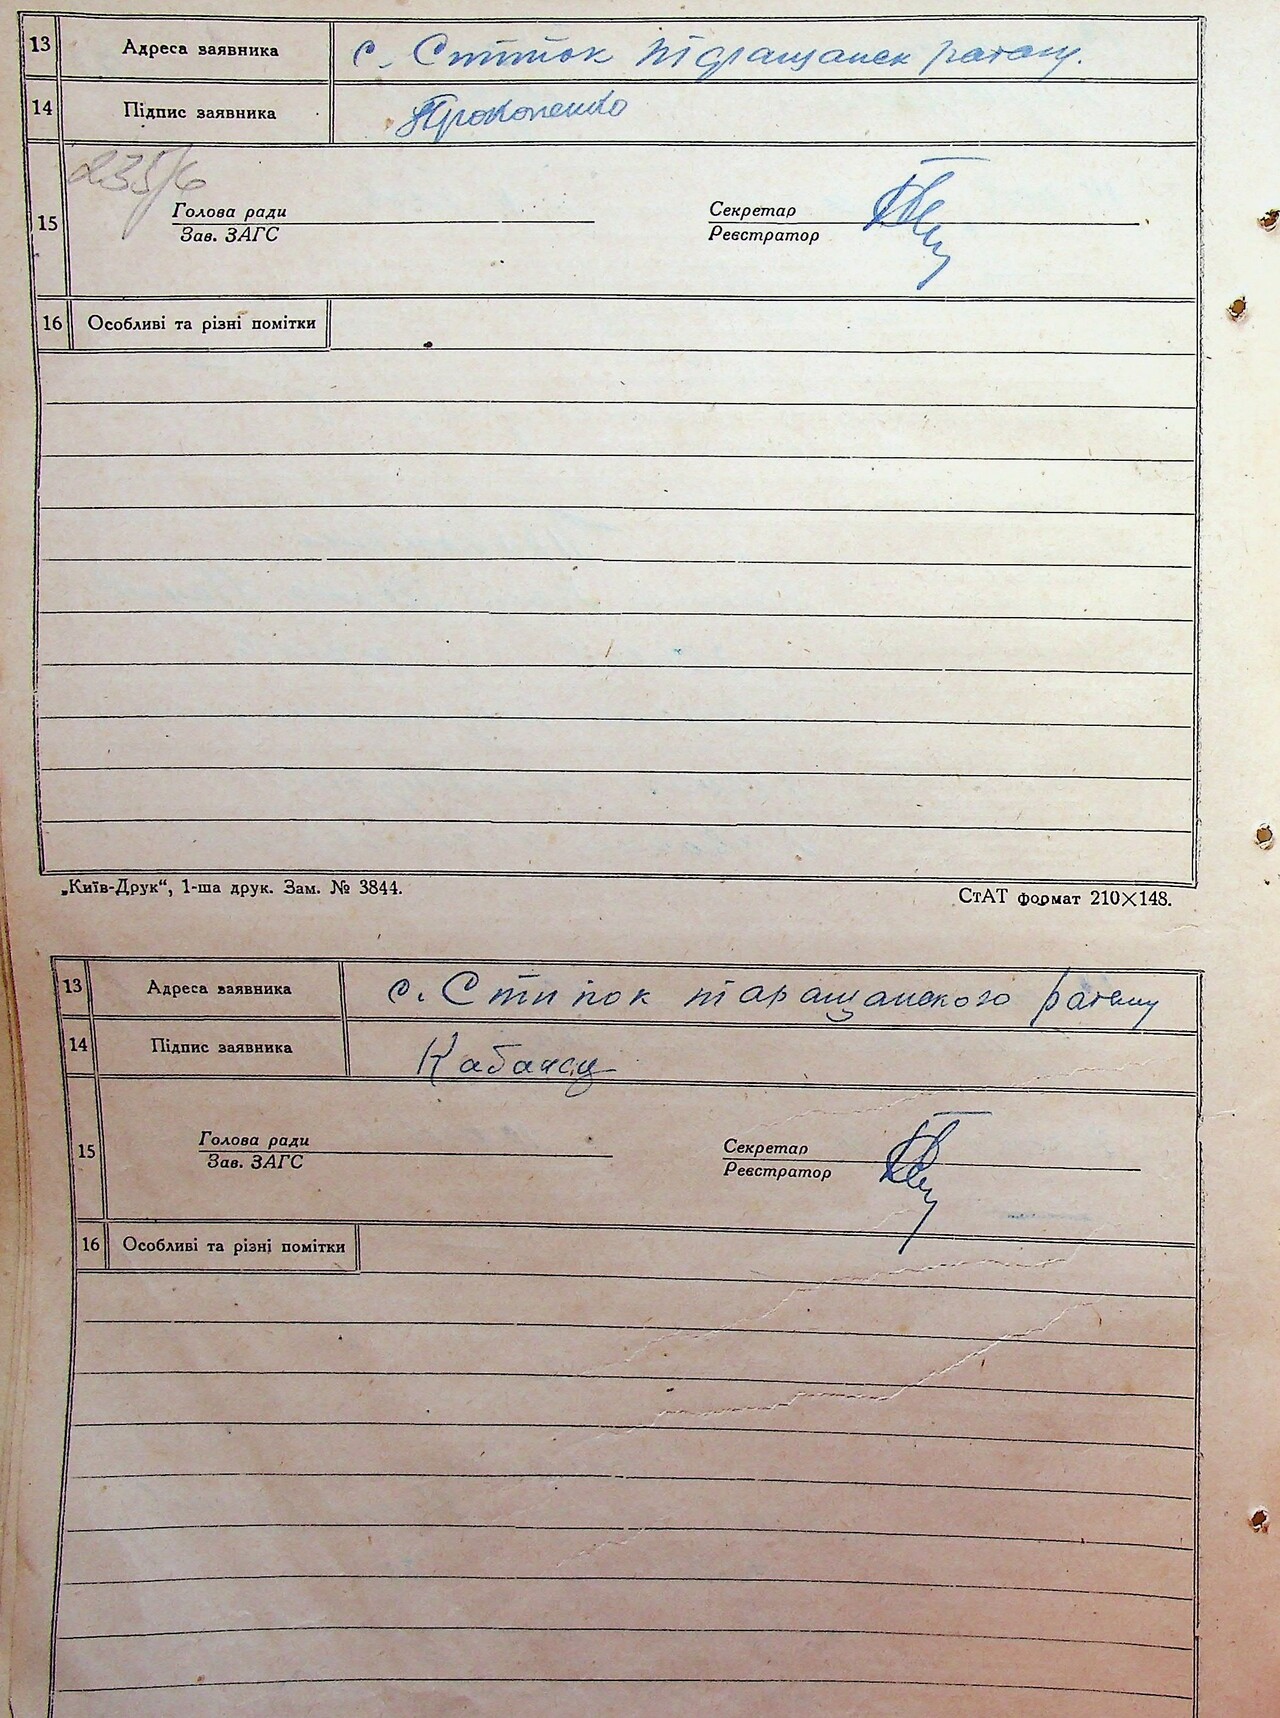 13 Адреса заявника с. Стипок Таращанск району.
14 Підпис заявника Прокопенко
235/6
15 Голова ради Секретар
Зав. ЗАГС Реєстратор
16 Особливі та різні помітки
„Київ-Друк“, 1-ша друк. Зам. № 3844. СтАТ формат 210×148.
13 Адреса заявника с. Стипок таращанского району
14 Підпис заявника
15 Голова ради Секретар
Зав. ЗАГС Реєстратор
16 Особливі та різні помітки